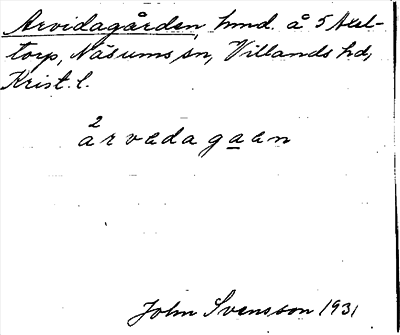 Arvidagården, hmd. å 5 Axel-
torp, Näsums sn, Villands hd,
Krist. l.
2
arvedagaen
John Svensson 1931